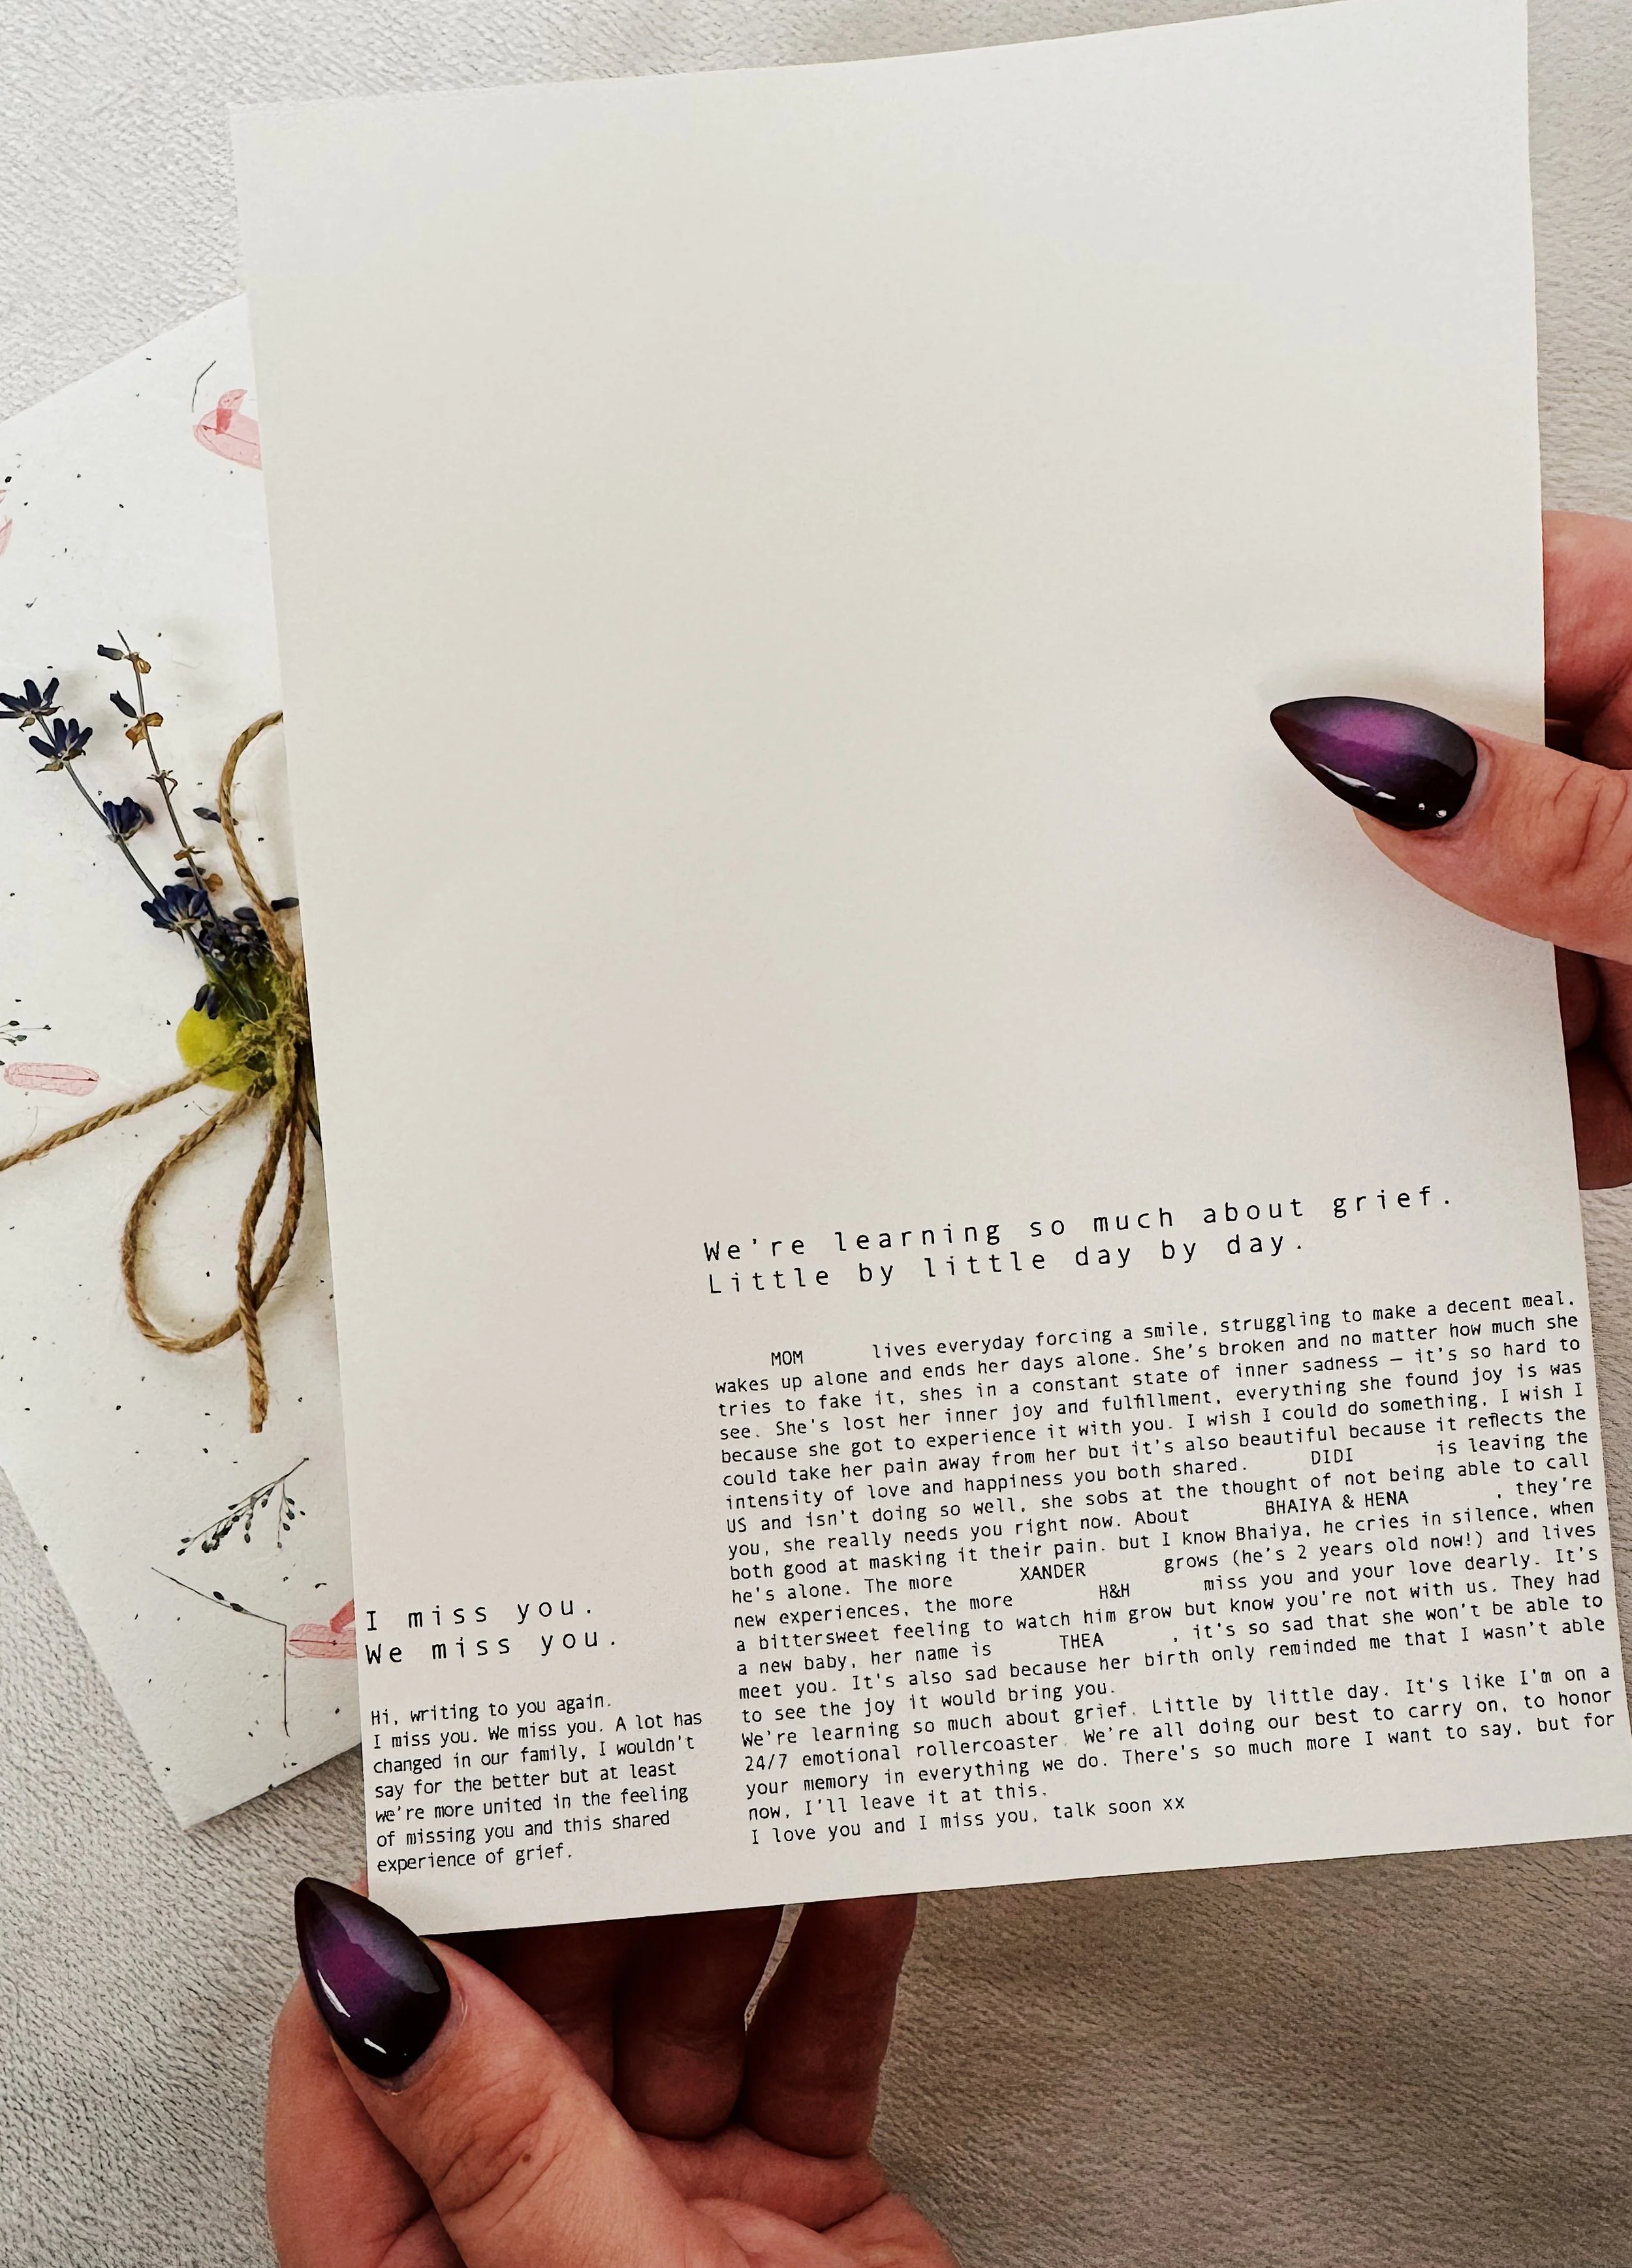 I miss you.
We miss you.
Hi, writing to you again.
I miss you. We miss you. A lot has
changed in our family, I wouldn't
say for the better but at least
we're more united in the feeling
of missing you and this shared
experience of grief.
We're learning so much about grief.
Little by little day by day.
MOM lives everyday forcing a smile, struggling to make a decent meal,
wakes up alone and ends her days alone. She's broken and no matter how much she
tries to fake it, shes in a constant state of inner sadness — it's so hard to
see. She's lost her inner joy and fulfillment, everything she found joy is was
because she got to experience it with you. I wish I could do something, I wish I
could take her pain away from her but it's also beautiful because it reflects the
intensity of love and happiness you both shared. DIDI is leaving the
US and isn't doing so well, she sobs at the thought of not being able to call
you, she really needs you right now. About BHAIYA & HENA , they're
both good at masking it their pain. but I know Bhaiya, he cries in silence, when
he's alone. The more XANDER grows (he's 2 years old now!) and lives
new experiences, the more H&H miss you and your love dearly. It's
a bittersweet feeling to watch him grow but know you're not with us. They had
a new baby, her name is THEA , it's so sad that she won't be able to
meet you. It's also sad because her birth only reminded me that I wasn't able
to see the joy it would bring you.
We're learning so much about grief. Little by little day. It's like I'm on a
24/7 emotional rollercoaster. We're all doing our best to carry on, to honor
your memory in everything we do. There's so much more I want to say, but for
now, I'll leave it at this.
I love you and I miss you, talk soon xx